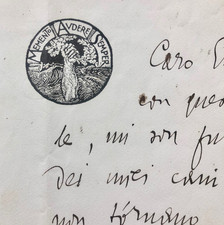 MEMENTO AVDERE SEMPER
Caro
con ques
le, mi son fu
dei miei cani
non tórnano